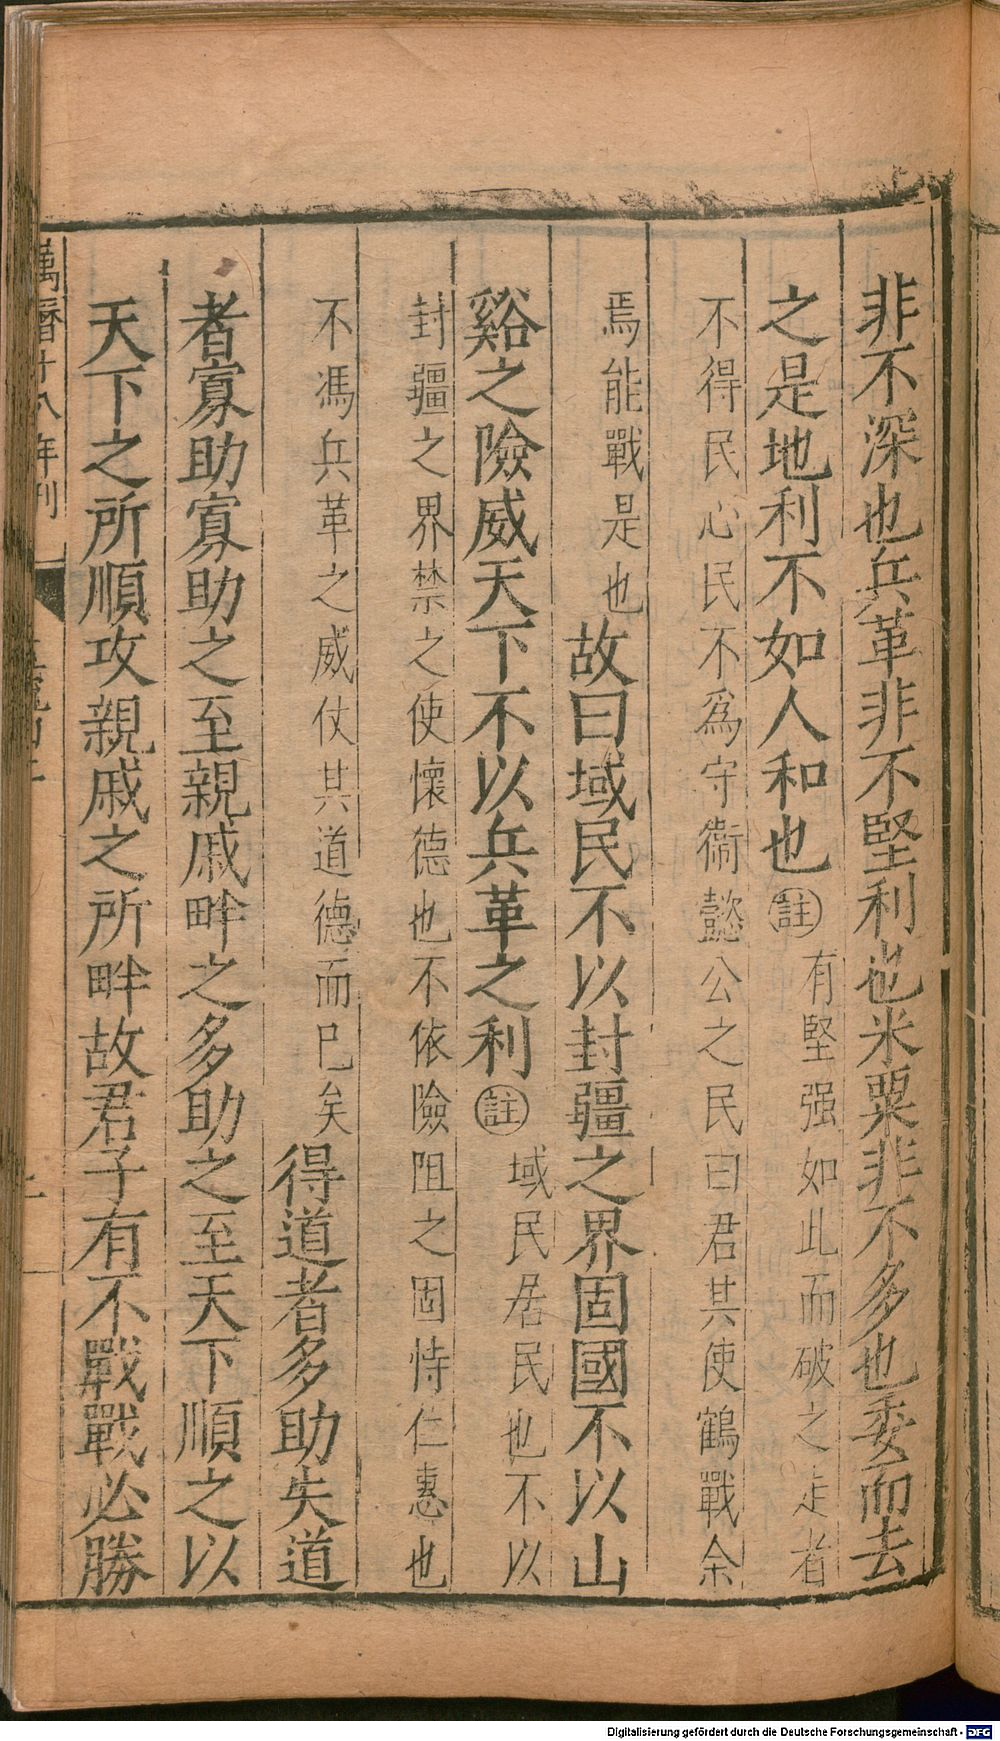 非不深也兵革非不堅利也米粟非不多也委而去
之是地利不如人和也註有堅强如此而破之走者
不得民心民不爲守衞懿公之民曰君其使鶴戰余
焉能戰是也故曰域民不以封疆之界固國不以山
谿之險威天下不以兵革之利註域民居民也不以
封疆之界禁之使懷德也不依險阻之固恃仁惠也
不馮兵革之威仗其道德而已矣得道者多助失道
者寡助寡助之至親戚畔之多助之至天下順之以
天下之所順攻親戚之所畔故君子有不戰戰必勝
萬曆十八年刊
Digitalisierung gefördert durch die Deutsche Forschungsgemeinschaft - DFG